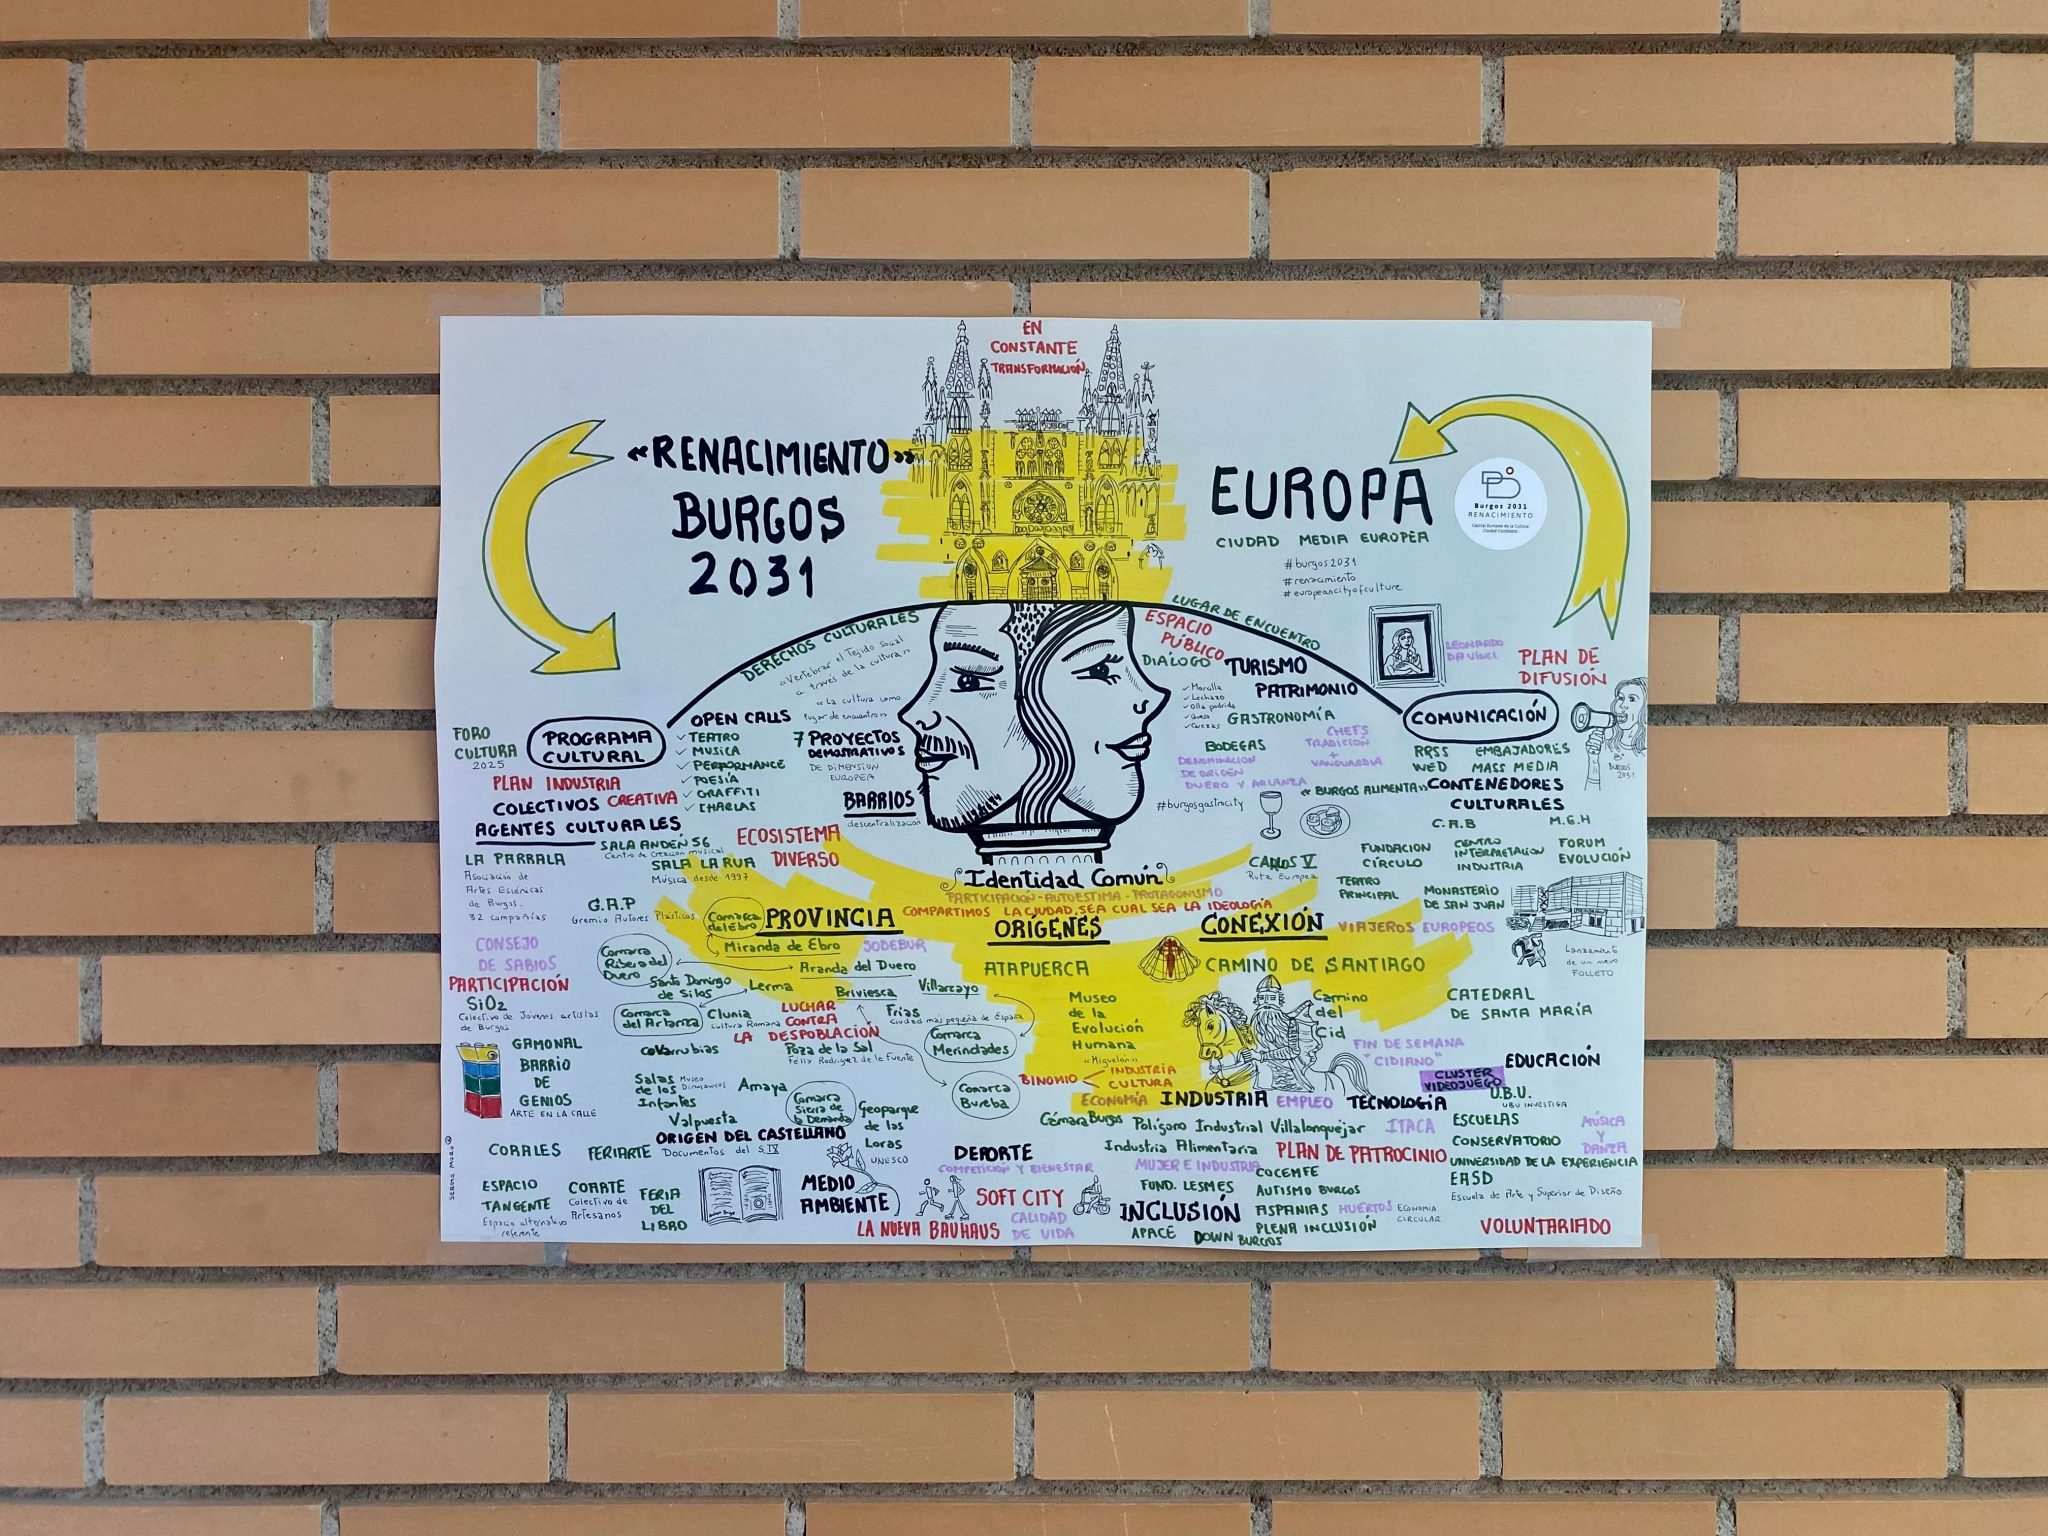 EN
CONSTANTE
TRANSFORMACIÓN
«RENACIMIENTO»
BURGOS
2031
EUROPA
CIUDAD MEDIA EUROPEA
#burgos2031
#renacimiento
#europeancityofculture
Burgos 2031
RENACIMIENTO
Capital Europea de la Cultura
Ciudad Candidata
DERECHOS CULTURALES
«Vertebrar el Tejido Social
a través de la cultura»
«La cultura como
lugar de encuentro»
LUGAR DE ENCUENTRO
ESPACIO
PÚBLICO
DIÁLOGO
TURISMO
PATRIMONIO
✓ Morcilla
✓ Lechazo
✓ Olla podrida
✓ Queso
✓ Cerezas
GASTRONOMÍA
CHEFS
TRADICIÓN
+
VANGUARDIA
BODEGAS
DENOMINACIÓN
DE ORIGEN
DUERO Y ARLANZA
#burgosgastrocity
«BURGOS ALIMENTA»
LEONARDO
DA VINCI
PLAN DE
DIFUSIÓN
COMUNICACIÓN
RRSS EMBAJADORES
WEB MASS MEDIA
B'
BURGOS
2031
CONTENEDORES
CULTURALES
C.A.B M.E.H
FUNDACION
CÍRCULO
CENTRO
INTERPRETACION
INDUSTRIA
FORUM
EVOLUCIÓN
TEATRO
PRINCIPAL
MONASTERIO
DE SAN JUAN
FORO
CULTURA
2025
PROGRAMA
CULTURAL
OPEN CALLS
✓ TEATRO
✓ MUSICA
✓ PERFORMANCE
✓ POESÍA
✓ GRAFFITI
✓ CHARLAS
7 PROYECTOS
DEMOSTRATIVOS
DE DIMENSION
EUROPEA
BARRIOS
descentralización
PLAN INDUSTRIA
CREATIVA
COLECTIVOS
AGENTES CULTURALES
ECOSISTEMA
DIVERSO
SALA ANDÉN 56
Centro de Creación musical
SALA LA RUA
Música desde 1997
LA PARRALA
Asociación de
Artes Escénicas
de Burgos.
32 compañías
G.A.P
Gremio Autores Plásticos
Identidad Común
PARTICIPACIÓN - AUTOESTIMA - PROTAGONISMO
COMPARTIMOS LA CIUDAD, SEA CUAL SEA LA IDEOLOGÍA
CARLOS V
Ruta Europea
Comarca
del Ebro
PROVINCIA
Miranda de Ebro
SODEBUR
Comarca
Ribera del
Duero
Aranda del Duero
Santo Domingo
de Silos
Lerma
Briviesca
Villarcayo
LUCHAR
CONTRA
LA DESPOBLACIÓN
Comarca
del Arlanza
Clunia
Cultura Romana
Frías
Ciudad más pequeña de España
Comarca
Merindades
Covarrubias
Poza de la Sal
Félix Rodríguez de la Fuente
Salas
de los
Infantes
Museo
Dinosaurios
Amaya
Comarca
Sierra de
la Demanda
Comarca
Bureba
Valpuesta
Geoparque
de las
Loras
UNESCO
ORIGEN DEL CASTELLANO
Documentos del S. IX
CONSEJO
DE SABIOS
PARTICIPACIÓN
SiO2
Colectivo de Jóvenes artistas
de Burgos
GAMONAL
BARRIO
DE
GENIOS
ARTE EN LA CALLE
CORALES
FERIARTE
ESPACIO
TANGENTE
Espacio alternativo
referente
COARTE
Colectivo de
Artesanos
FERIA
DEL
LIBRO
ORÍGENES
ATAPUERCA
Museo
de la
Evolución
Humana
«Miguelón»
BINOMIO < INDUSTRIA
CULTURA
CONEXIÓN
VIAJEROS EUROPEOS
CAMINO DE SANTIAGO
Camino
del
Cid
FIN DE SEMANA
"CIDIANO"
Lanzamiento
de un nuevo
FOLLETO
CATEDRAL
DE SANTA MARÍA
EDUCACIÓN
CLUSTER
VIDEOJUEGO
U.B.U.
UBU INVESTIGA
ECONOMÍA INDUSTRIA EMPLEO TECNOLOGÍA
Cámara Burgos Polígono Industrial Villalonquejar ITACA
Industria Alimentaria
MUJER E INDUSTRIA
FUND. LESMES
PLAN DE PATROCINIO
ESCUELAS
CONSERVATORIO
MÚSICA
Y
DANZA
UNIVERSIDAD DE LA EXPERIENCIA
EASD
Escuela de Arte y Superior de Diseño
VOLUNTARIADO
DEPORTE
COMPETICIÓN Y BIENESTAR
MEDIO
AMBIENTE
SOFT CITY
CALIDAD
DE VIDA
LA NUEVA BAUHAUS
INCLUSIÓN
APACE
DOWN BURGOS
COCEMFE
AUTISMO BURGOS
ASPANIAS
PLENA INCLUSIÓN
HUERTOS
ECONOMÍA
CIRCULAR